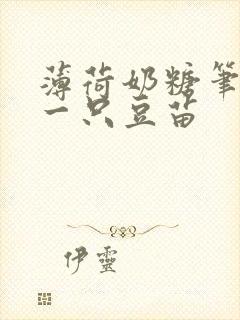 薄荷奶糖笔
一只豆苗
伊灵